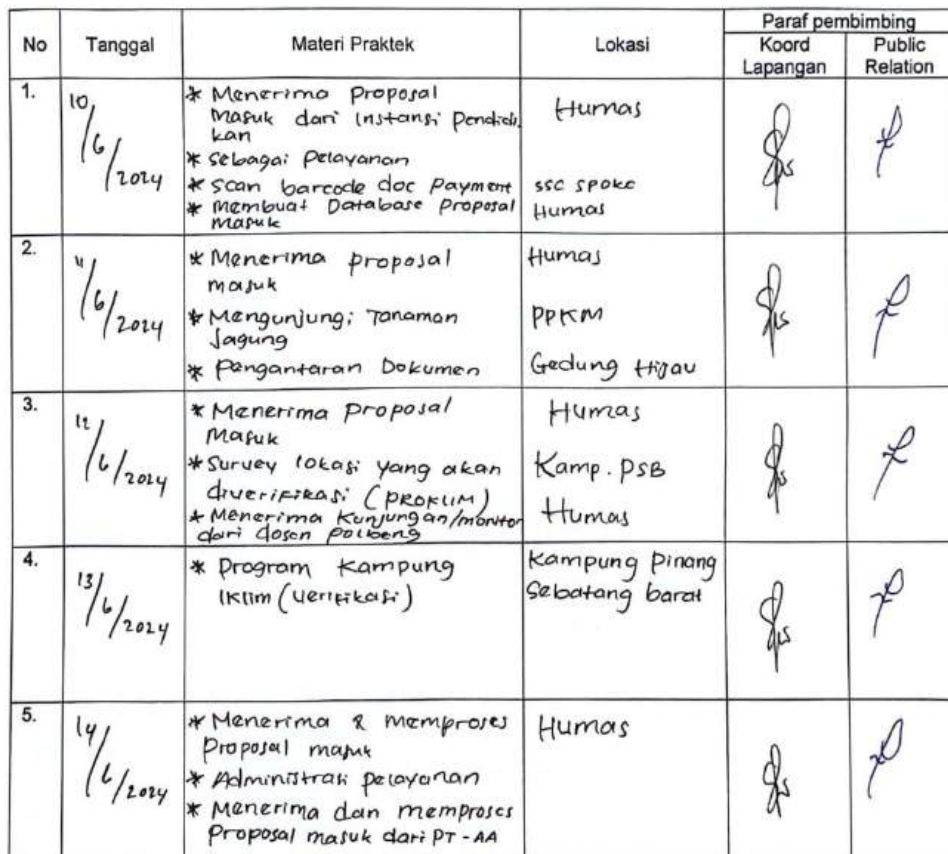 No Tanggal Materi Praktek Lokasi Paraf pembimbing
Koord Lapangan Public Relation
1. 10/6/2024
* Menerima Proposal
Masuk dari Instansi Pendidi
kan
* Sebagai Pelayanan
* Scan barcode doc Payment
* Membuat Database Proposal
Masuk
Humas
SSC SPOKE
Humas
2. 11/6/2024
* Menerima proposal
masuk
* Mengunjungi Tanaman
Jagung
* Pengantaran Dokumen
Humas
PPKM
Gedung Hijau
3. 12/6/2024
* Menerima Proposal
Masuk
* Survey lokasi yang akan
diverifikasi (PROKLIM)
* Menerima Kunjungan/monitor
dari dosen polbeng
Humas
Kamp. PSB
Humas
4. 13/6/2024
* Program Kampung
Iklim (Verifikasi)
Kampung Pinang
Sebatang barat
5. 14/6/2024
* Menerima & memproses
Proposal masuk
* Administrasi pelayanan
* Menerima dan memproses
Proposal masuk dari PT-AA
Humas